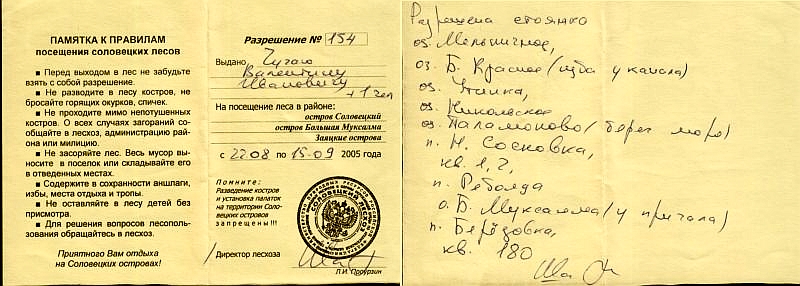 ПАМЯТКА К ПРАВИЛАМ
посещения соловецких лесов
■ Перед выходом в лес не забудьте
взять с собой разрешение.
■ Не разводите в лесу костров, не
бросайте горящих окурков, спичек.
■ Не проходите мимо непотушенных
костров. О всех случаях загораний со-
общайте в лесхоз, администрацию рай-
она или милицию.
■ Не засоряйте лес. Весь мусор вы-
носите в поселок или складывайте его
в отведенных местах.
■ Содержите в сохранности аншлаги,
избы, места отдыха и тропы.
■ Не оставляйте в лесу детей без
присмотра.
■ Для решения вопросов лесополь-
зования обращайтесь в лесхоз.
Приятного Вам отдыха
на Соловецких островах!
Разрешение № 154
Выдано Чугаю
Валентину
Ивановичу
+ 1 чел
На посещение леса в районе:
остров Соловецкий
остров Большая Муксалма
Заяцкие острова
с 22 08 по 15.09 2005 года
Помните:
Разведение костров
и установка палаток
на территории Соло-
вецких островов
запрещены!!!
СОЛОВЕЦКИЙ ЛЕСХОЗ
Директор лесхоза
Разрешена стоянка
оз. Мельничное,
оз. Б. Красное (изба у канала)
оз.
оз. Никольское
оз. Паламоново (берег моря)
п. Н. Сосновка,
кв. 1, 2,
п. Реболда
о. Б. Муксалма (у причала)
п. Берёзовка,
кв. 180